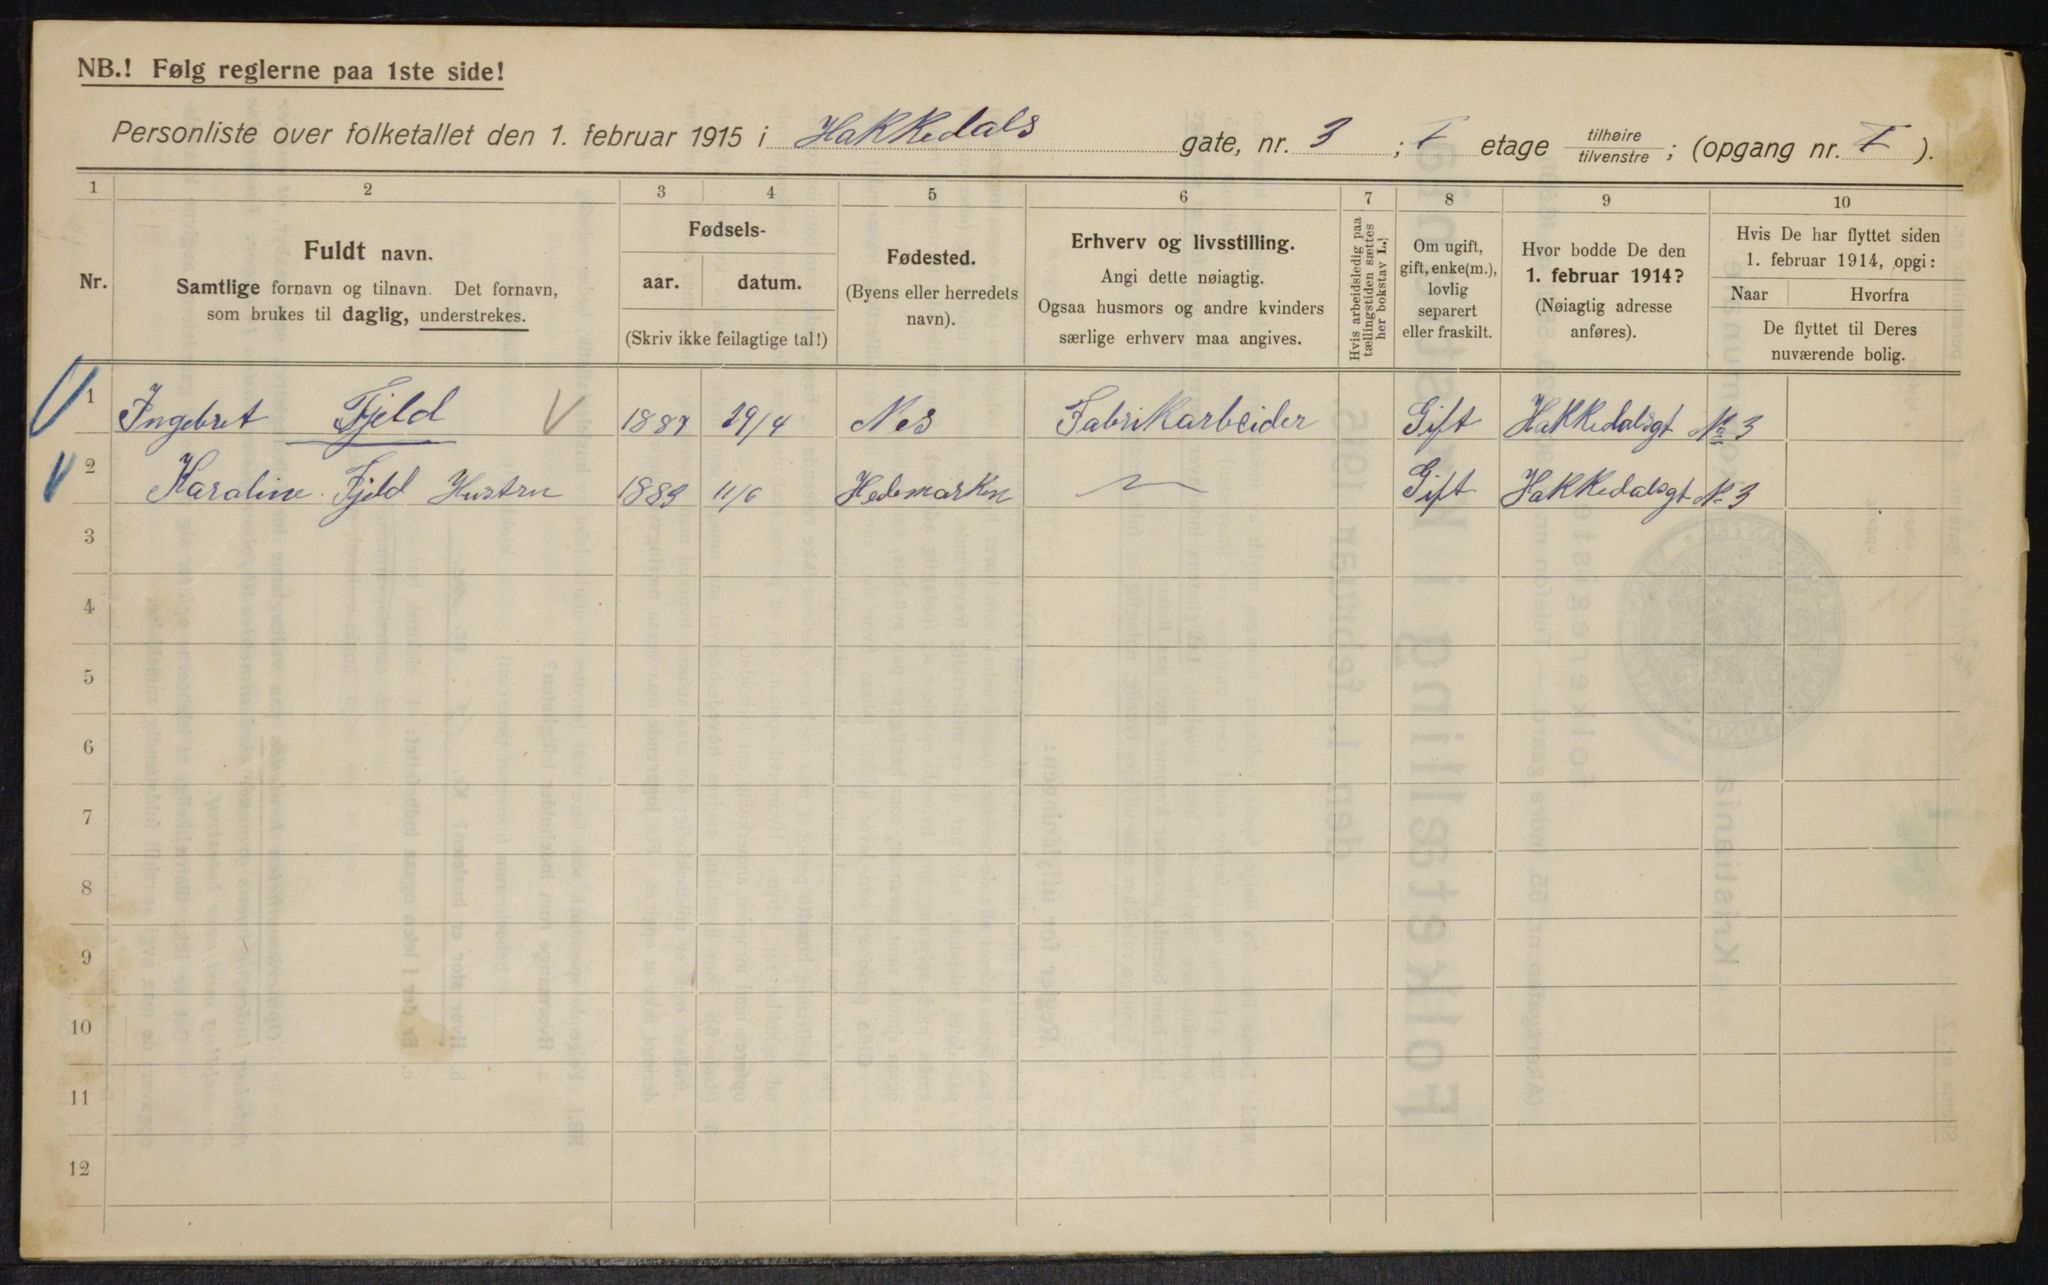 NB.! Følg reglerne paa 1ste side!
Personliste over folketallet den 1. februar 1915 i Hakkedals gate, nr. 3 ; I etage tilhøire/tilvenstre ; (opgang nr. I ).
1 2 3 4 5 6 7 8 9 10
Nr.
Fuldt navn.
Samtlige fornavn og tilnavn. Det fornavn,
som brukes til daglig, understrekes.
Fødsels-
aar. datum.
(Skriv ikke feilagtige tal!)
Fødested.
(Byens eller herredets
navn).
Erhverv og livsstilling.
Angi dette nøiagtig.
Ogsaa husmors og andre kvinders
særlige erhverv maa angives.
Hvis arbeidsledig paa
tællingstiden sættes
her bokstav L.
Om ugift,
gift, enke(m.),
lovlig
separert
eller fraskilt.
Hvor bodde De den
1. februar 1914?
(Nøiagtig adresse
anføres).
Hvis De har flyttet siden
1. februar 1914, opgi:
Naar Hvorfra
De flyttet til Deres
nuværende bolig.
1 Ingebret Fjeld 29/4 Nes Fabrikarbeider Gift Hakkedalsgt No 3
2 Karoline Fjeld Hustru 1889 11/6 Hedemarken Gift Hakkedalsgt N. 3
3
4
5
6
7
8
9
10
11
12